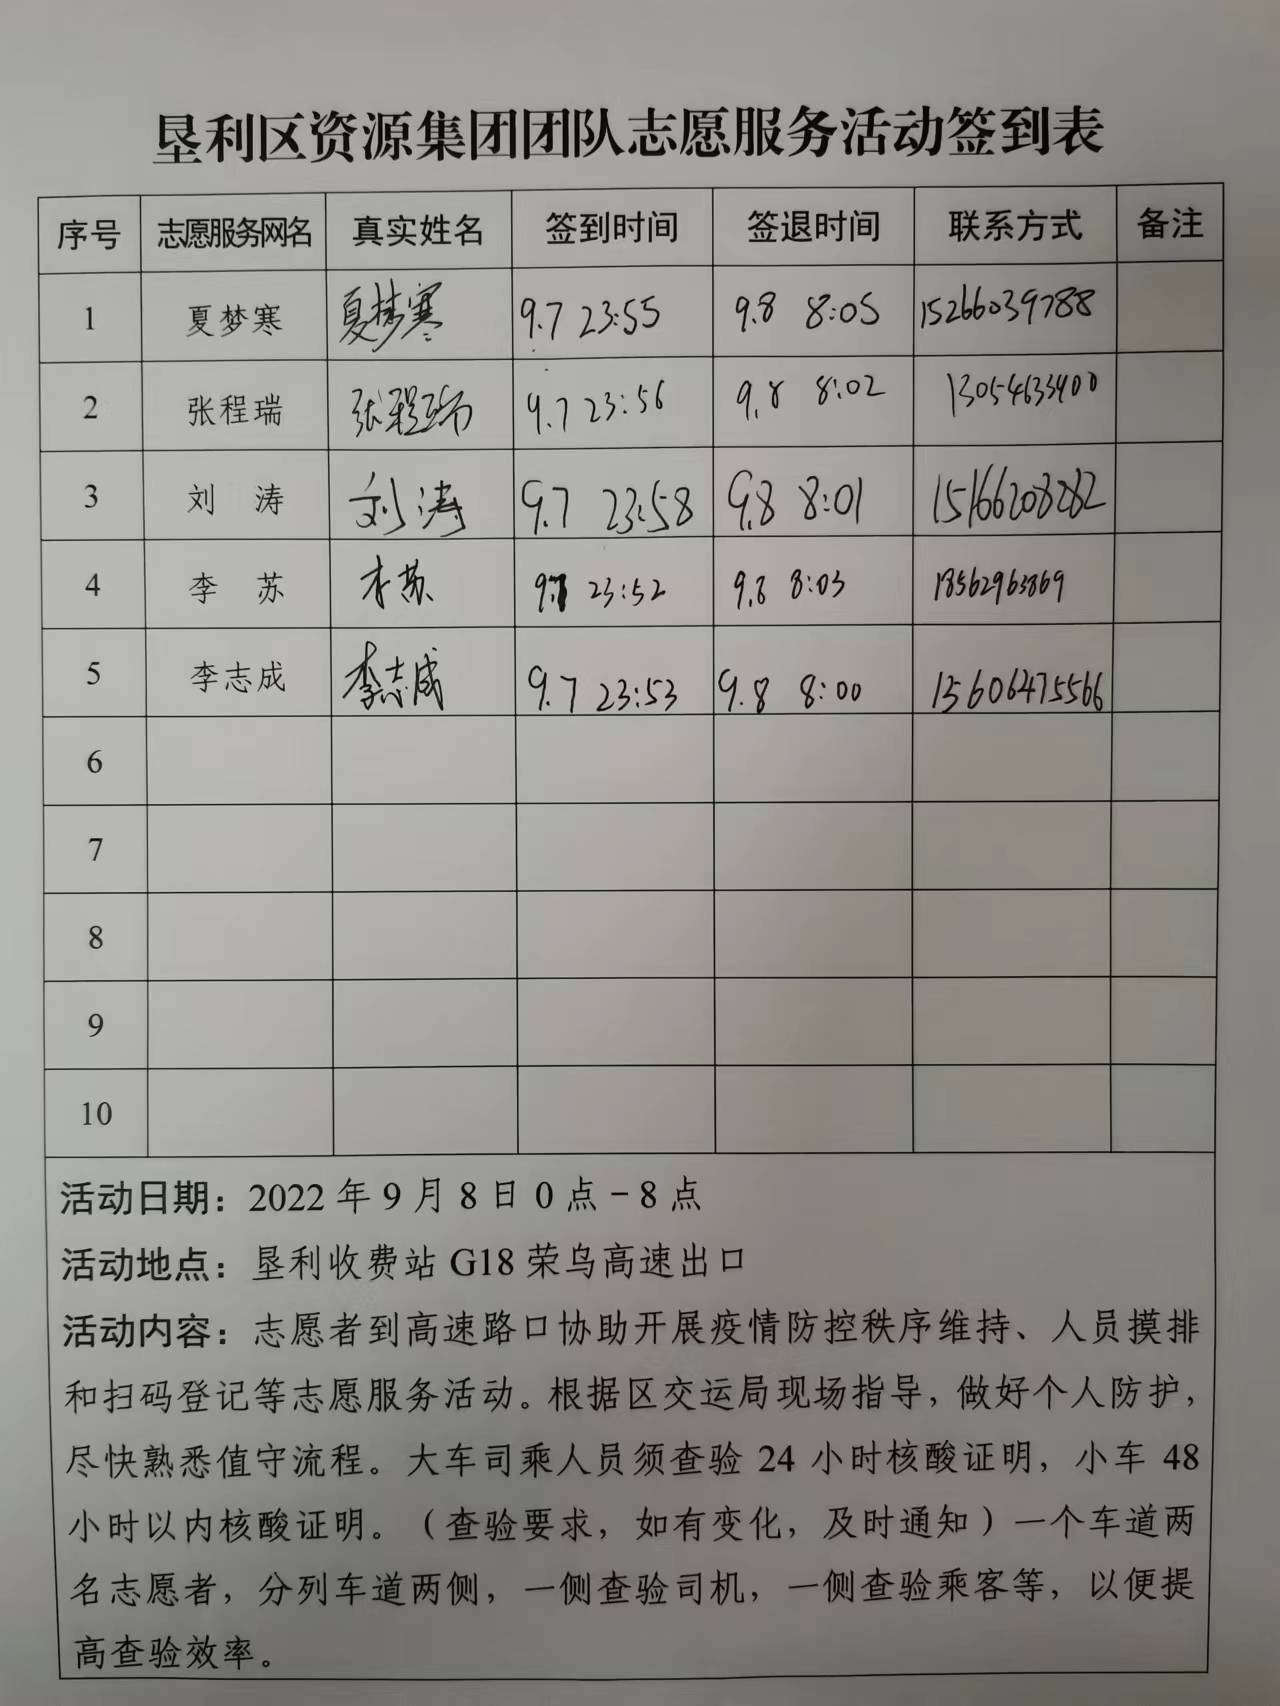 垦利区资源集团团队志愿服务活动签到表
序号 志愿服务网名 真实姓名 签到时间 签退时间 联系方式 备注
1 夏梦寒 夏梦寒 9.7 23:55 9.8 8:05 15266039788
2 张程瑞 张程瑞 9.7 23:56 9.8 8:02 13054633400
3 刘 涛 刘涛 9.7 23:58 9.8 8:01 15166208282
4 李 苏 李苏 9.7 23:52 9.8 8:03 18562963869
5 李志成 李志成 9.7 23:53 9.8 8:00 15606475566
6
7
8
9
10
活动日期：2022 年 9 月 8 日 0 点－8 点
活动地点：垦利收费站 G18 荣乌高速出口
活动内容：志愿者到高速路口协助开展疫情防控秩序维持、人员摸排
和扫码登记等志愿服务活动。根据区交运局现场指导，做好个人防护，
尽快熟悉值守流程。大车司乘人员须查验 24 小时核酸证明，小车 48
小时以内核酸证明。（查验要求，如有变化，及时通知）一个车道两
名志愿者，分列车道两侧，一侧查验司机，一侧查验乘客等，以便提
高查验效率。